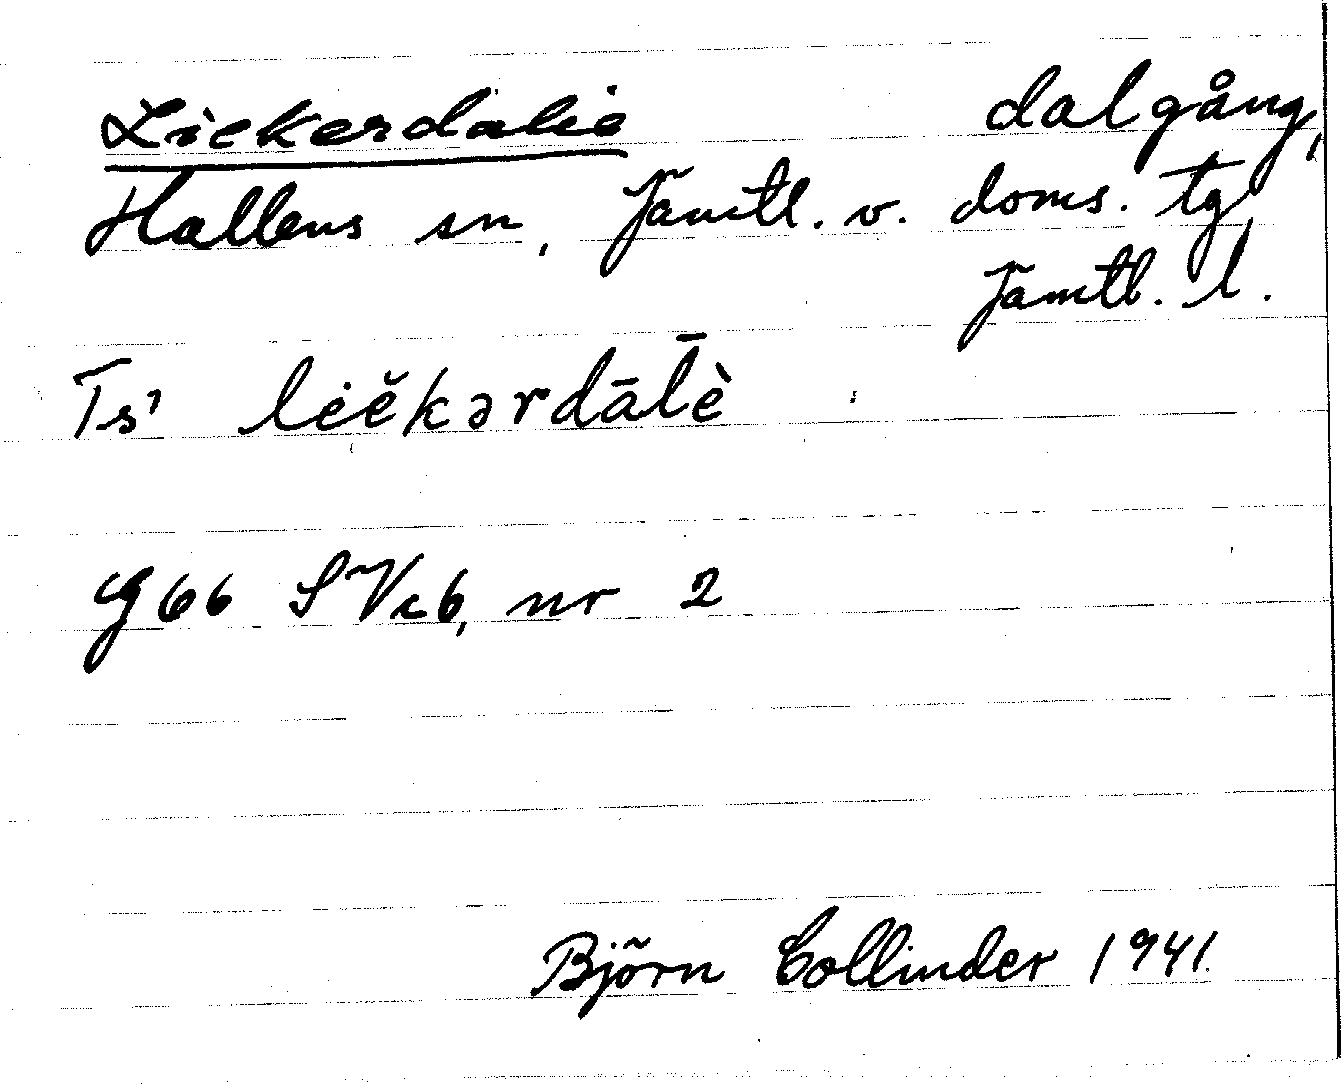 Liekerdalie dalgång,
Hallens sn, Jämtl. v. doms. tg
Jämtl. l.
Ts' lėĕkərdāl̄è
G66 S Vcb, nr 2
Björn Collinder 1941.